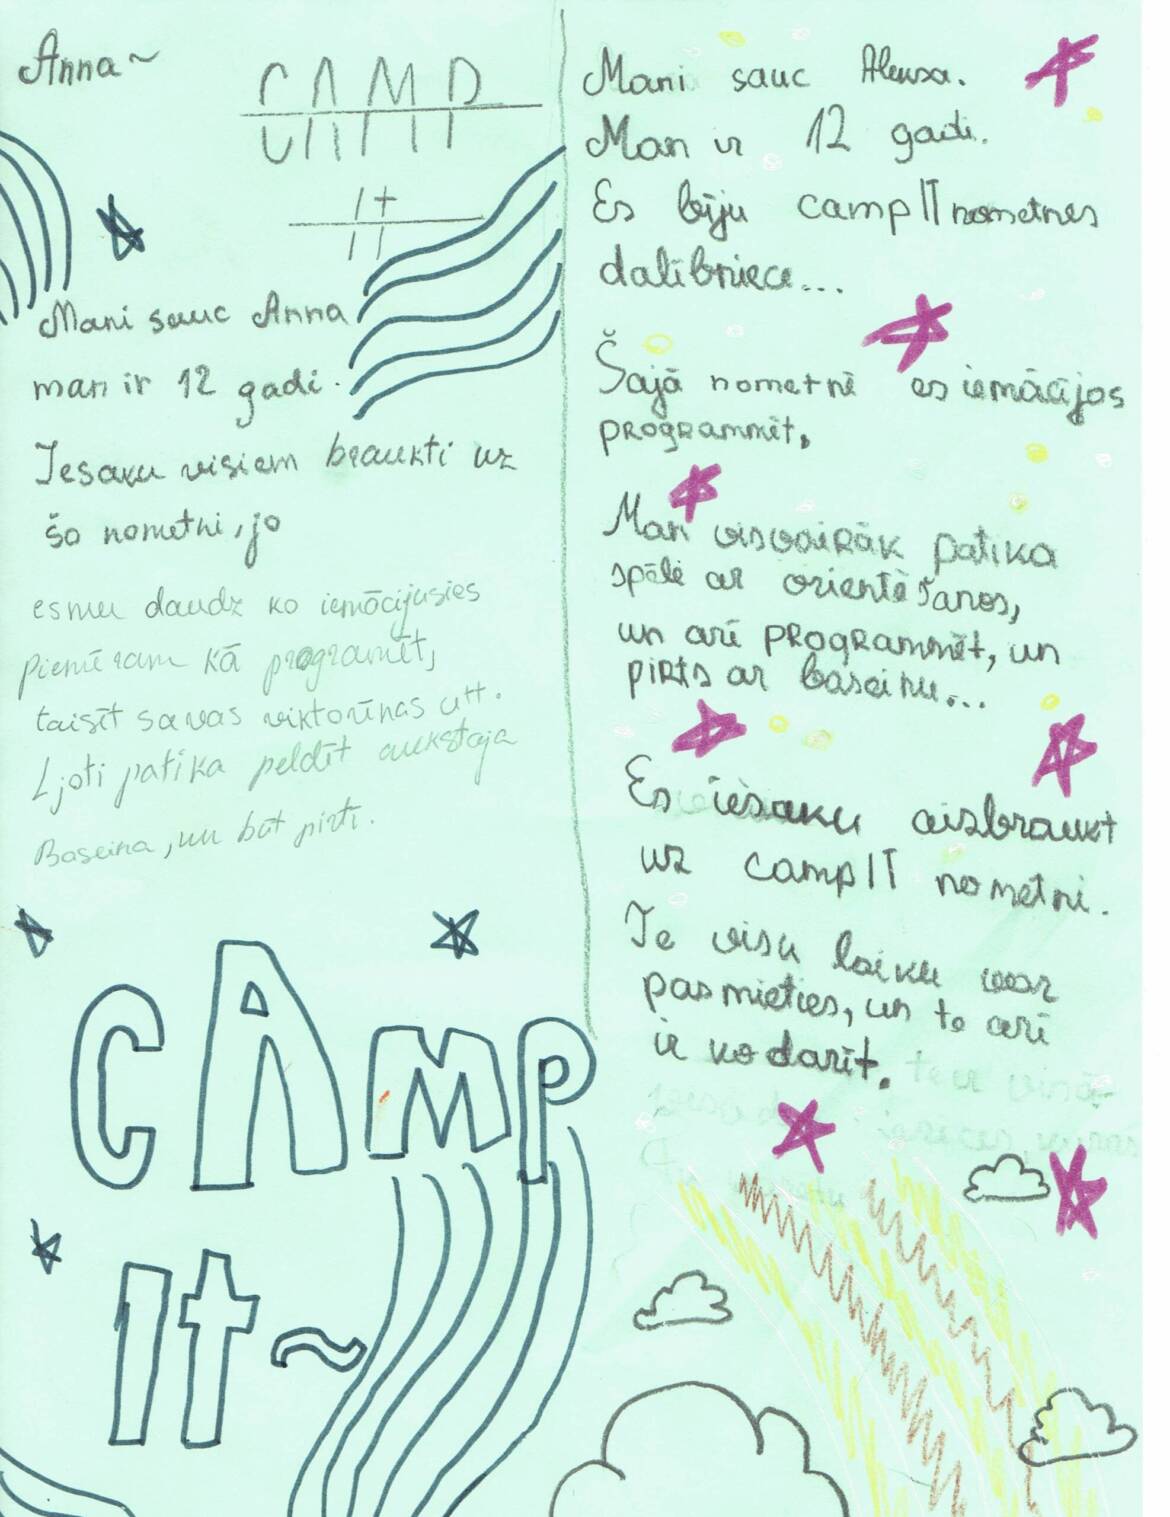 Anna~
CAMP
It
Mani sauc Anna
man ir 12 gadi.
Iesaku visiem braukti uz
šo nometni, jo
esmu daudz ko iemācijusies
piemēram kā programēt,
taisīt savas viktorīnas utt.
Ljoti patika peldīt aukstaja
Baseina, un būt pirti.
CAMP
It~
Mani sauc Alexsa.
Man ir 12 gadi.
Es biju campIT nometnes
dalībniece...
Šajā nometnē es iemācījos
programmēt,
Man visvairāk patika
spēlē ar orientēšanos,
un arī programmēt, un
pirts ar baseinu...
Es iesaku aizbraukt
uz campIT nometni.
Te visu laiku var
pasmieties, un te arī
ir ko darīt.